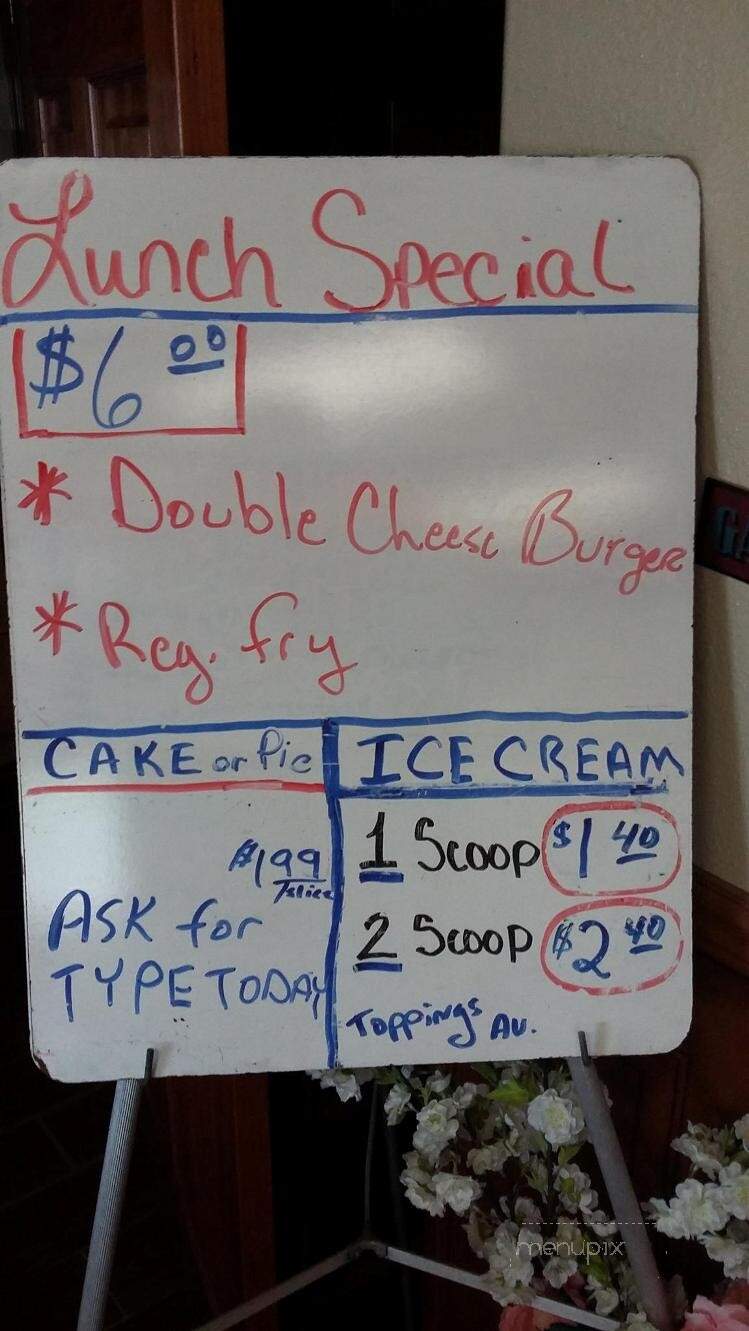 Lunch Special
$6 00
* Double Cheese Burger
* Reg. fry
CAKE or Pie
$1 99
/slice
ASK for
TYPE TODAY
ICE CREAM
1 Scoop $1 40
2 Scoop $2 40
Toppings AV.
menupix